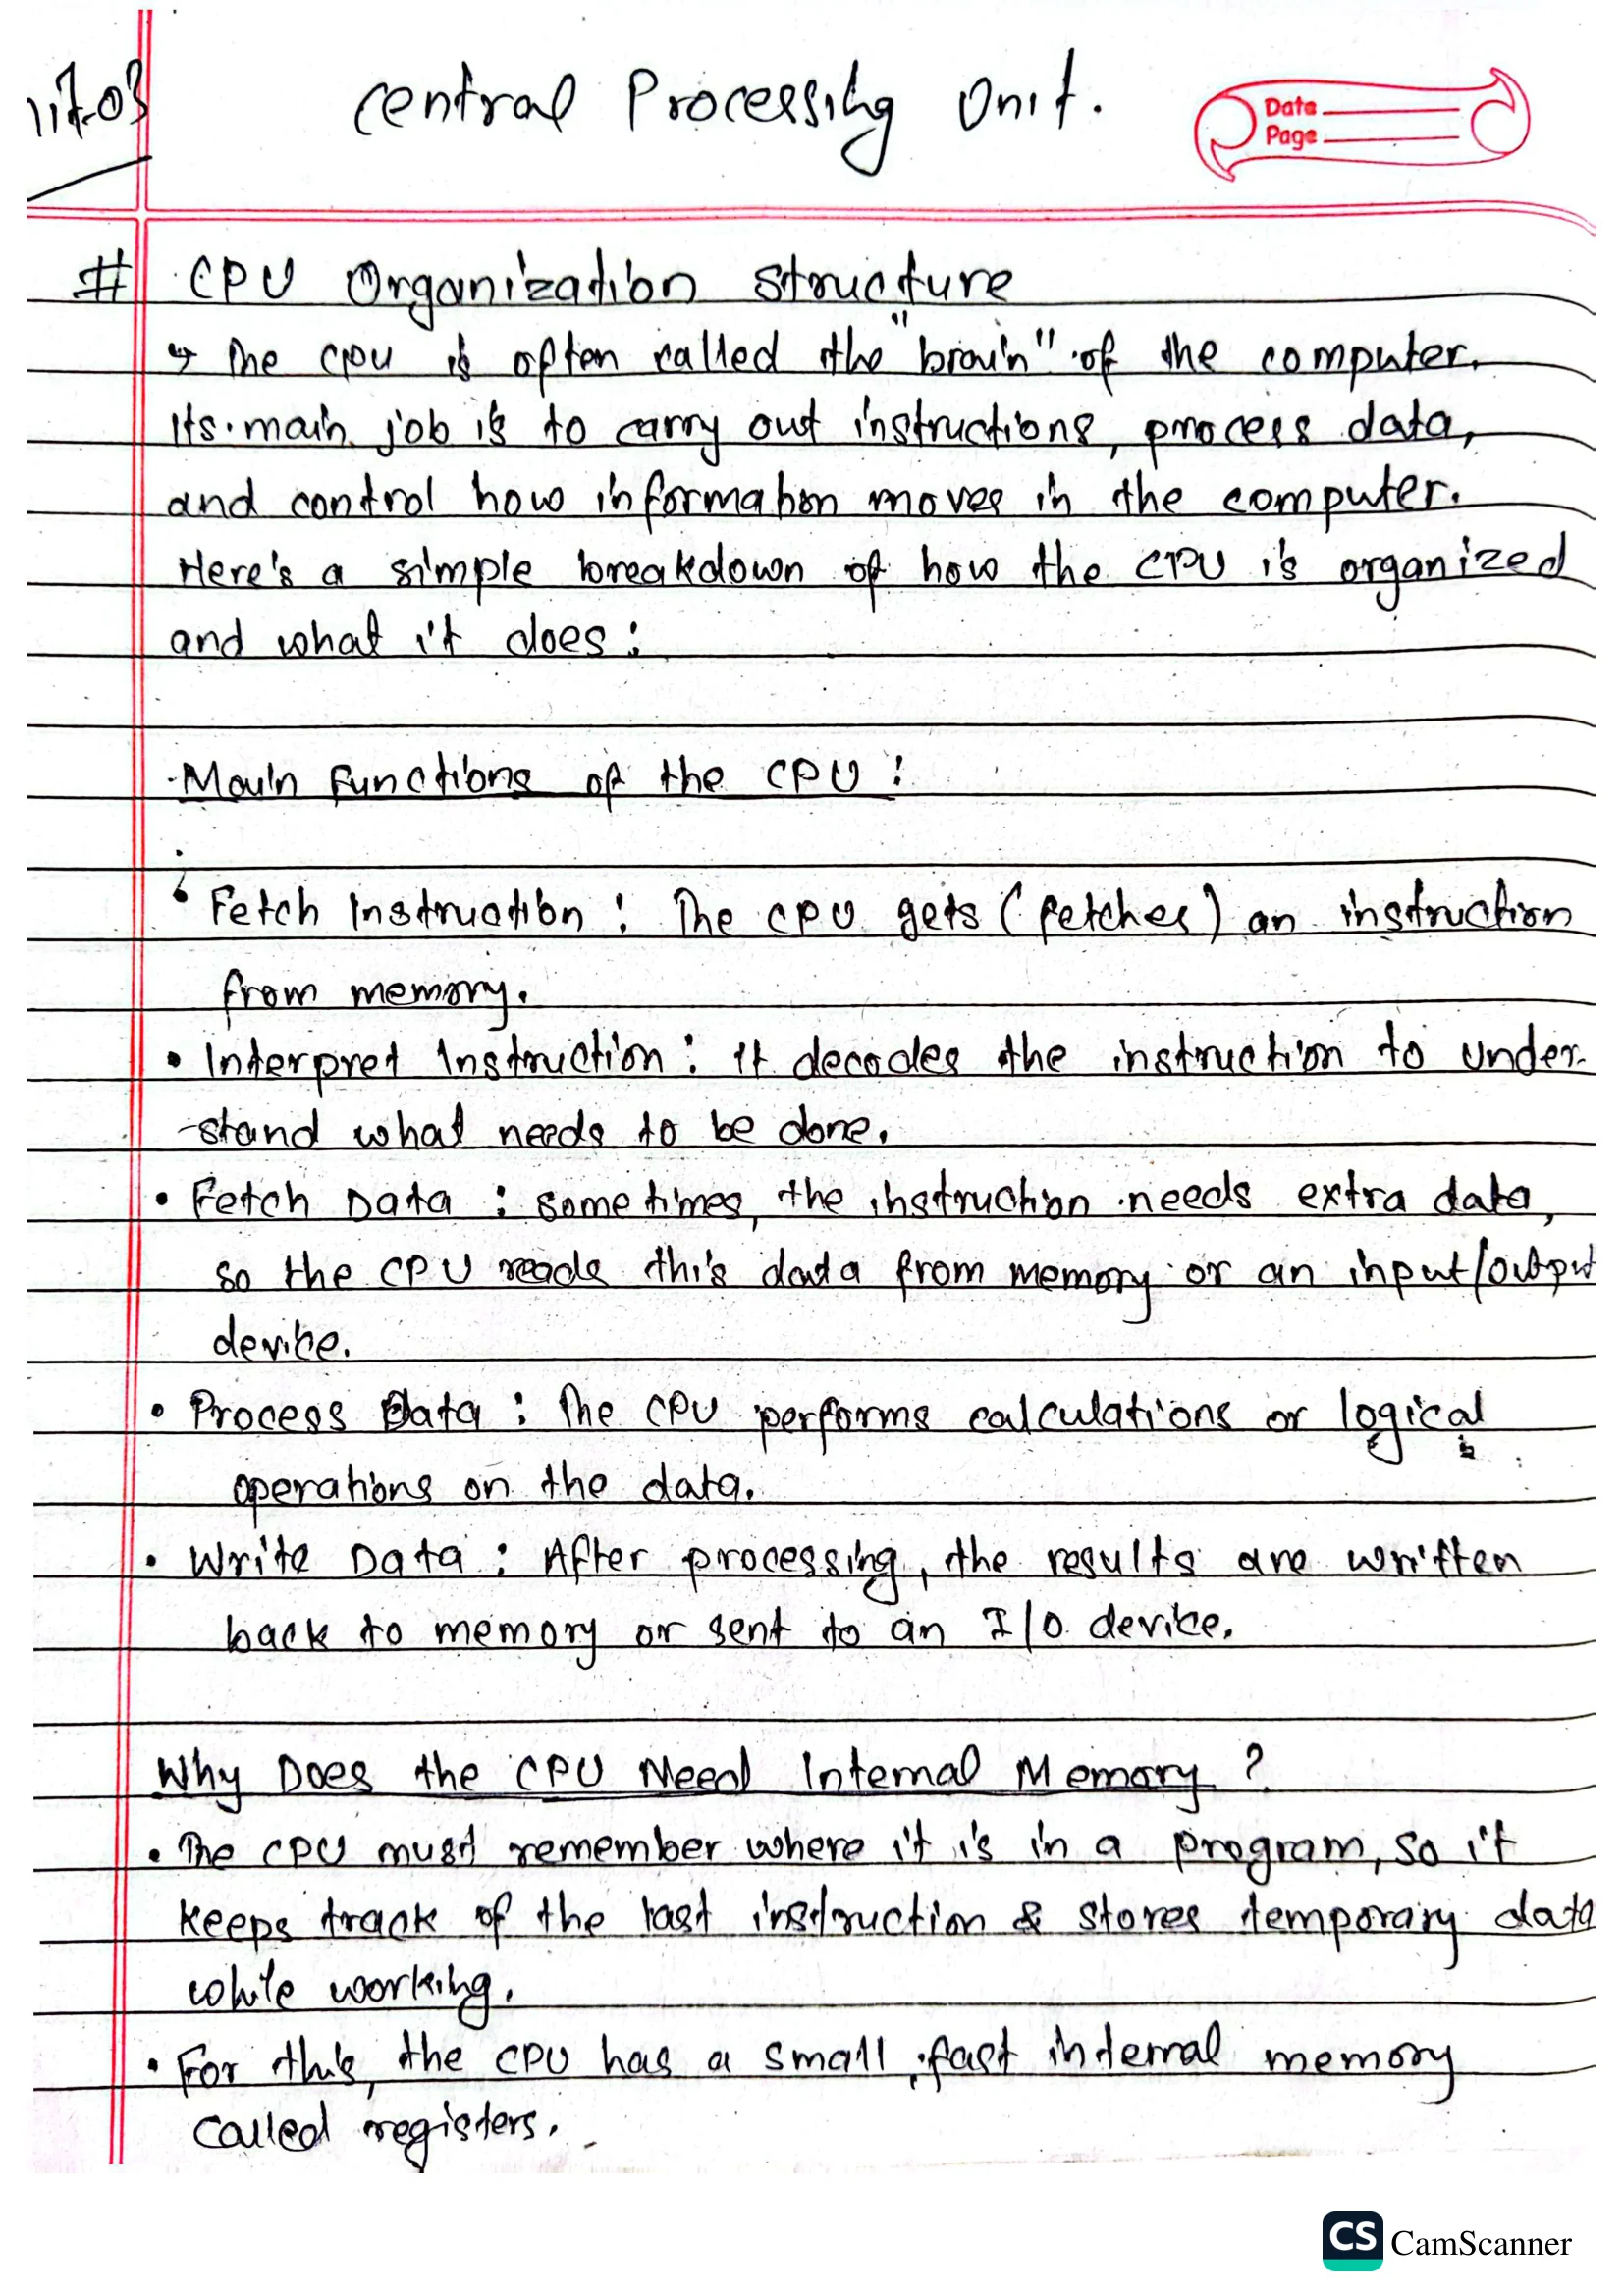 Central Processing Unit.
Date
Page
# CPU Organization Structure
↳ The CPU is often called the "brain" of the computer.
Its main job is to carry out instructions, process data,
and control how information moves in the computer.
Here's a simple breakdown of how the CPU is organized
and what it does:
Main Functions of the CPU:
• Fetch Instruction: The CPU gets (fetches) an instruction
from memory.
• Interpret Instruction: It decodes the instruction to under-
-stand what needs to be done.
• Fetch Data: Sometimes, the instruction needs extra data,
so the CPU reads this data from memory or an input/output
device.
• Process Data: The CPU performs calculations or logical
operations on the data.
• Write Data: After processing, the results are written
back to memory or sent to an I/O device.
Why Does the CPU Need Internal Memory?
• The CPU must remember where it is in a program, so it
keeps track of the last instruction & stores temporary data
while working.
• For this, the CPU has a small, fast internal memory
called registers.
CS CamScanner